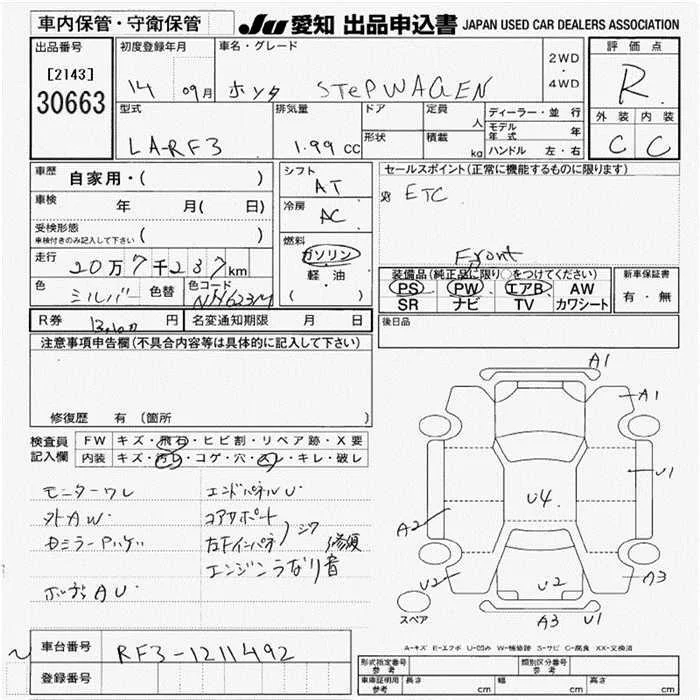 車内保管・守衛保管
JU 愛知 出品申込書 JAPAN USED CAR DEALERS ASSOCIATION
出品番号
[2143]
30663
初度登録年月
14 09月
車名・グレード
ホンダ STePWAGEN
2WD
・
4WD
評価点
R
外装 内装
C C
型式
LA-RF3
排気量
1.99 cc
ドア
形状
定員
人
積載
kg
ディーラー・並行
モデル年式 年
ハンドル 左・右
車歴
自家用・( )
車検
年 月( 日)
受検形態
車検付きのみ記入して下さい ( )
走行
20万7千237km
色
シルバー
色替
色コード
NH623M
シフト
AT
冷房
AC
燃料
ガソリン
軽・油
( )
セールスポイント(正常に機能するものに限ります)
ETC
Front
装備品(純正品に限り○をつけてください)
PS PW エアB AW
SR ナビ TV カワシート
新車保証書
有・無
R券 円
名変通知期限 月 日
後日品
注意事項申告欄(不具合内容等は具体的に記入して下さい)
修復歴 有(箇所
検査員
記入欄
FW キズ・飛石・ヒビ割・リペア跡・X要
内装 キズ・汚レ・コゲ・穴・スレ・キレ・破レ
モニターワレ
外AW
エンドパネルU
コアサポート
左下インパネ
シワ
修復
エンジンうなり音
AU
A1
A1
U1
U4
A2
U2
U2
A3
A3 U1
スペア
A-キズ E-エクボ U-凹み W-補修跡 S-サビ C-腐食 XX-交換済
車台番号
RF3-1211492
登録番号
型式指定番号
参考
類別区分番号
参考
車庫証明用
参考
長さ cm
幅 cm
高さ cm